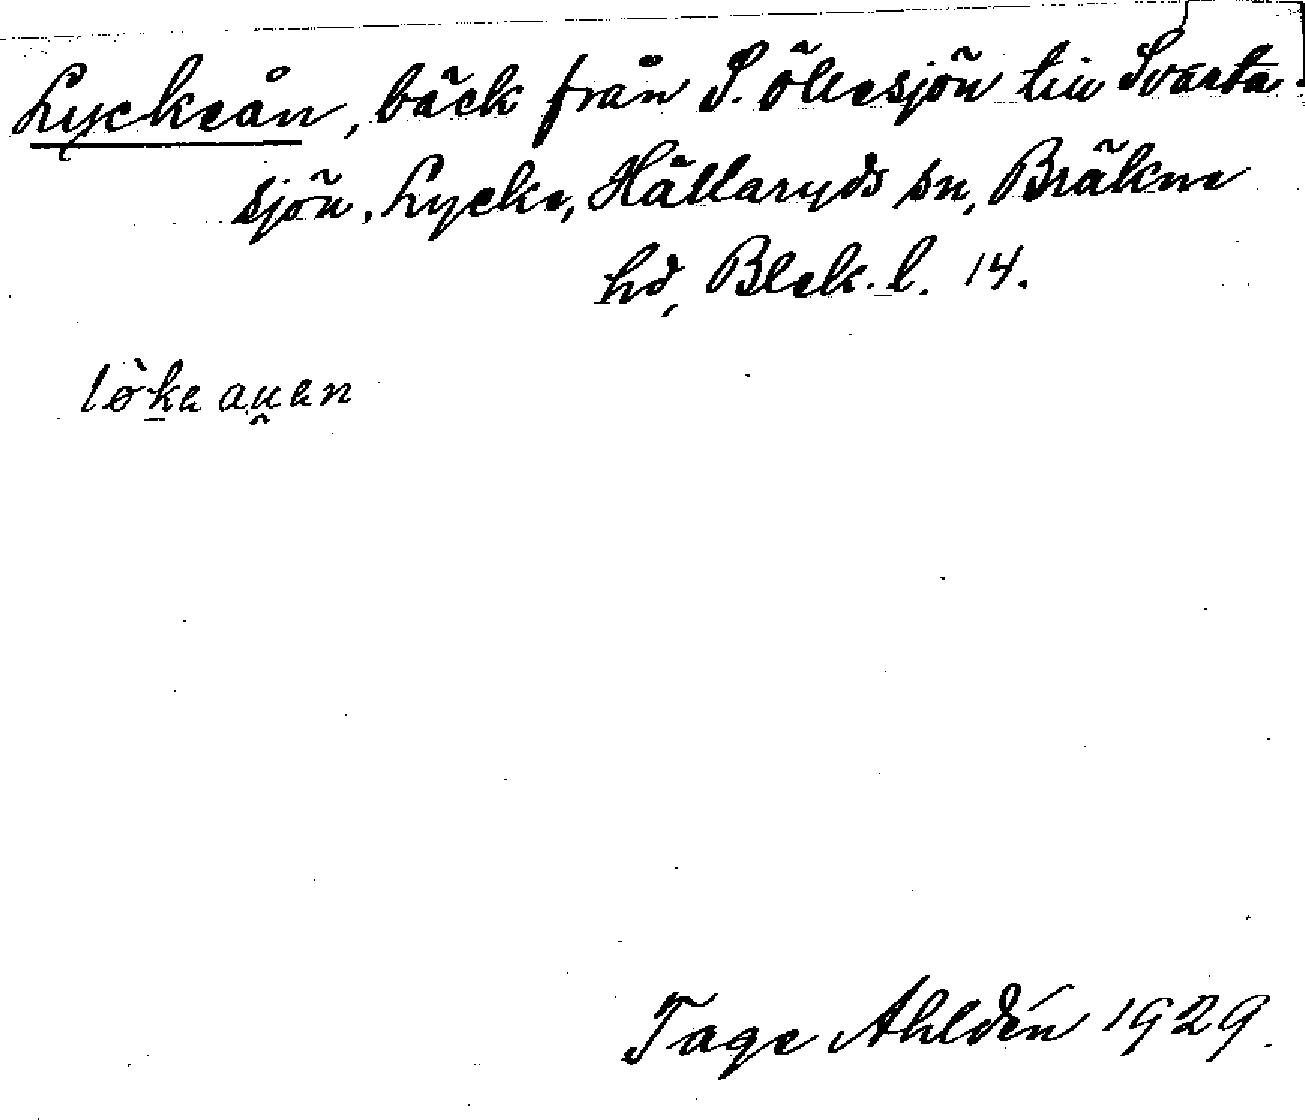 Lyckeån, bäck från S. Öllesjön till Svarta-
sjön. Lycke, Hällaryds sn, Bräkne
hd, Blek. l. 14.
lø̀ka au̯en
Tage Ahldén 1929.